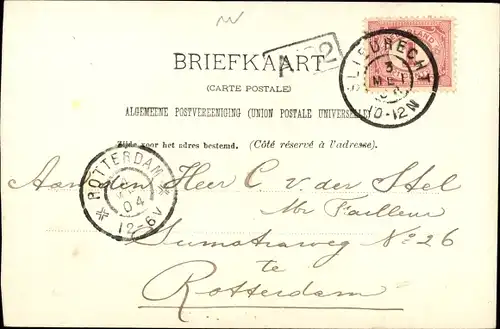 BRIEFKAART
(CARTE POSTALE)
ALGEMEENE POSTVEREENIGING (UNION POSTALE UNIVERSELLE)
Zijde voor het adres bestemd. (Côté réservé à l'adresse).
SLIEDRECHT
3
MEI
10-12N
ROTTERDAM
04
12-6V
Aan den Heer C. v. der Stel
Mr Tailleur
Sumatraweg No 26
te
Rotterdam